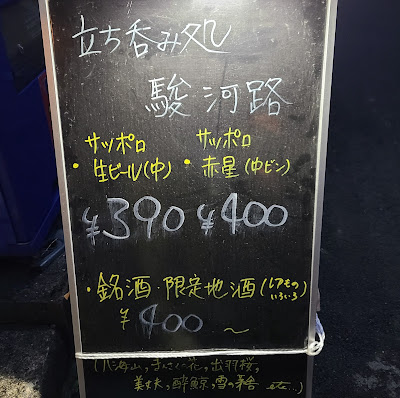 立ち呑み処
駿河路
サッポロ サッポロ
・生ビール(中) ・赤星(中ビン)
¥390 ¥400
・銘酒・限定地酒(レアもの
いろいろ)
¥400 ～
(八海山,まんさくの花,出羽桜,
美丈夫,酔鯨,雪の茅舎 etc...)